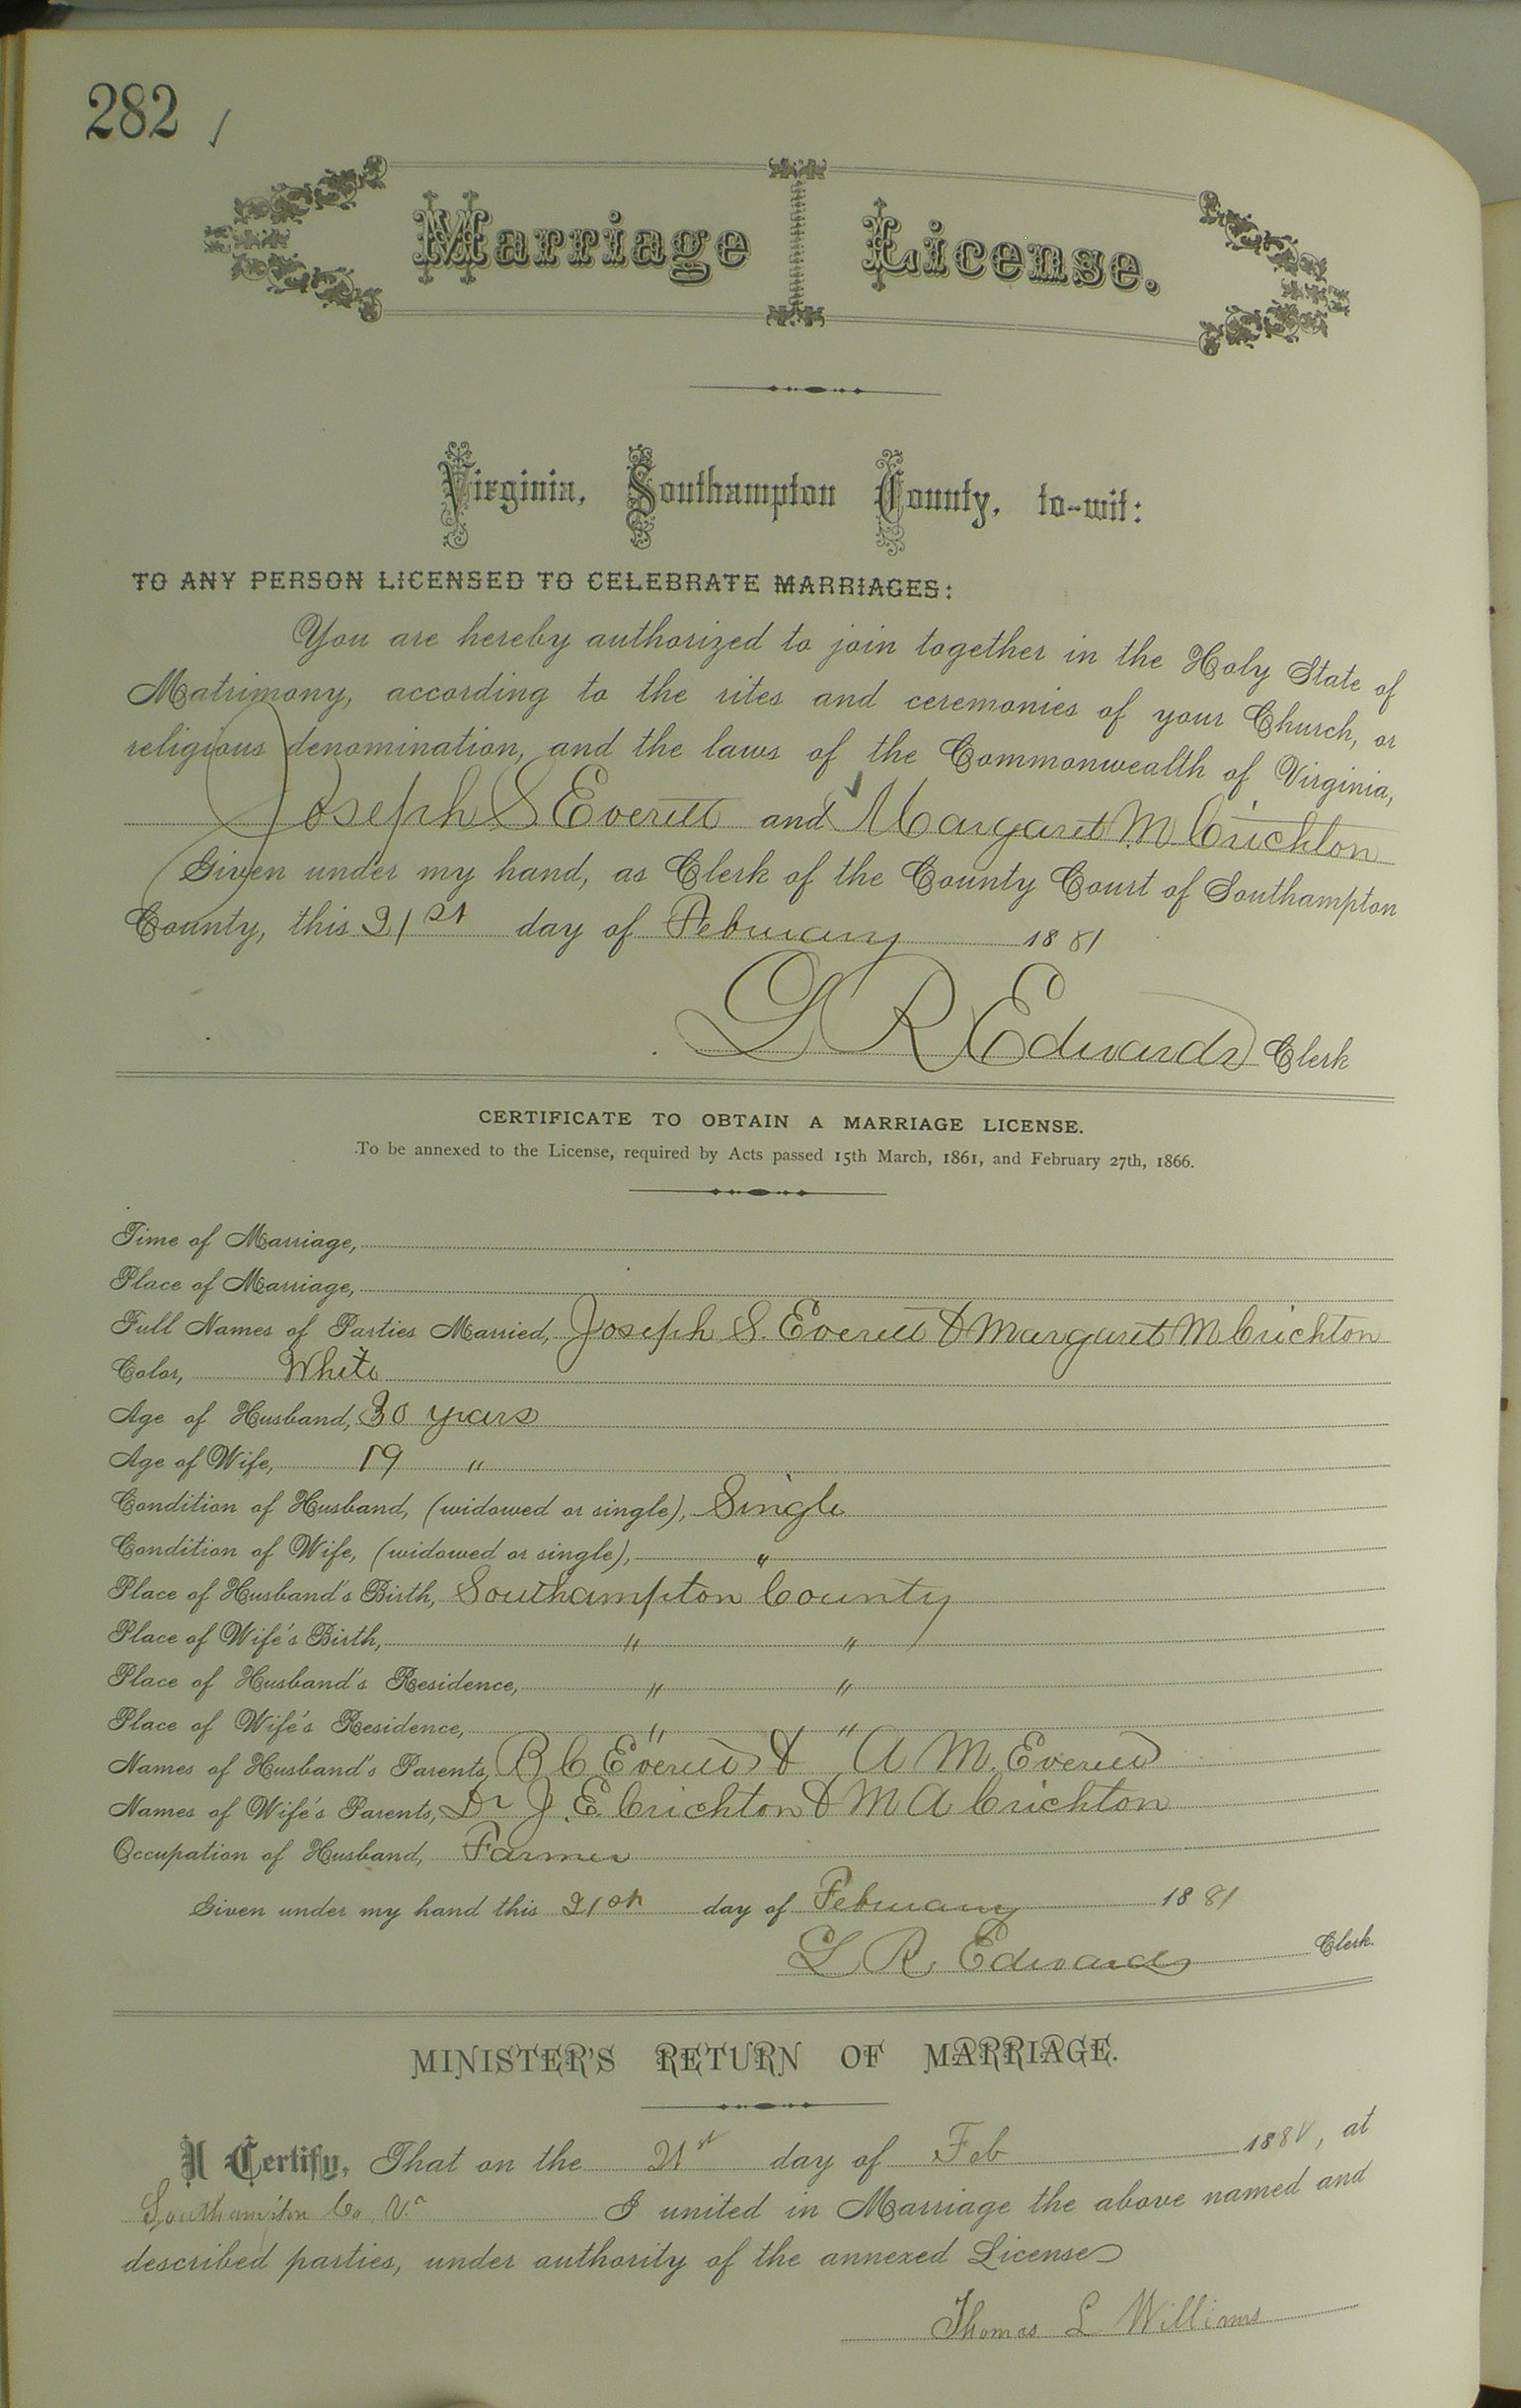 282
Marriage License.
Virginia, Southampton County, to-wit:
TO ANY PERSON LICENSED TO CELEBRATE MARRIAGES:
You are hereby authorized to join together in the Holy State of
Matrimony, according to the rites and ceremonies of your Church, or
religious denomination, and the laws of the Commonwealth of Virginia,
Joseph S Everett and Margaret M Crichton
Given under my hand, as Clerk of the County Court of Southampton
County, this 21st day of February 1881
L R Edwards Clerk
CERTIFICATE TO OBTAIN A MARRIAGE LICENSE.
To be annexed to the License, required by Acts passed 15th March, 1861, and February 27th, 1866.
Time of Marriage,
Place of Marriage,
Full Names of Parties Married, Joseph S. Everett & Margaret M Crichton
Color, White
Age of Husband, 30 years
Age of Wife, 19 "
Condition of Husband, (widowed or single), Single
Condition of Wife, (widowed or single), "
Place of Husband's Birth, Southampton County
Place of Wife's Birth, " "
Place of Husband's Residence, " "
Place of Wife's Residence, " "
Names of Husband's Parents, B C Everett & A M. Everett
Names of Wife's Parents, Dr J. E. Crichton & M A Crichton
Occupation of Husband, Farmer
Given under my hand this 21st day of February 1881
L R. Edwards Clerk.
MINISTER'S RETURN OF MARRIAGE.
I Certify, That on the 21st day of Feb 1881, at
Southampton Co. Va I united in Marriage the above named and
described parties, under authority of the annexed License
Thomas L Williams